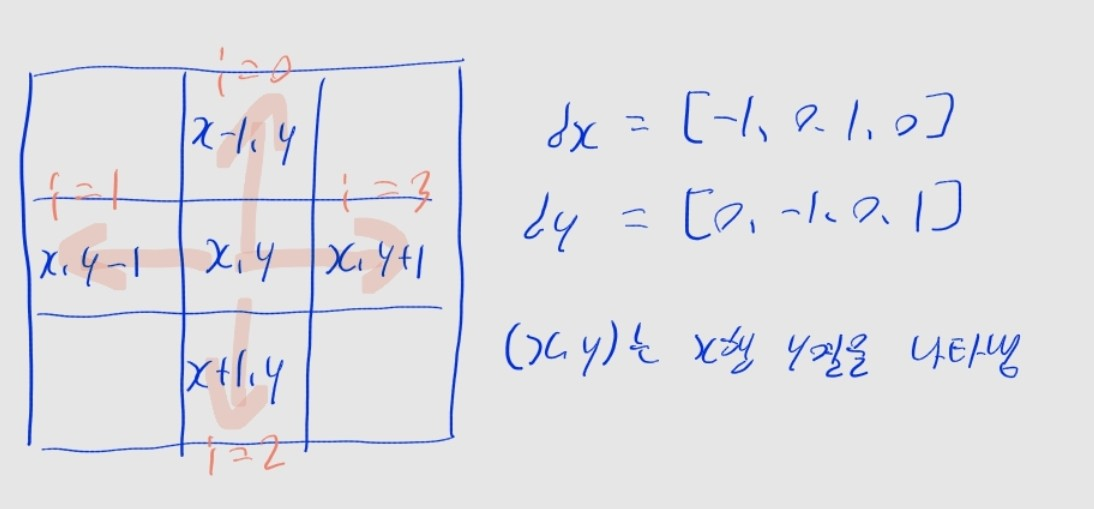 i=0
x-1, y
i=1
i=3
x, y-1
x, y
x, y+1
x+1, y
i=2
dx = [-1, 0, 1, 0]
dy = [0, -1, 0, 1]
(x, y)는 x행 y열을 나타냄